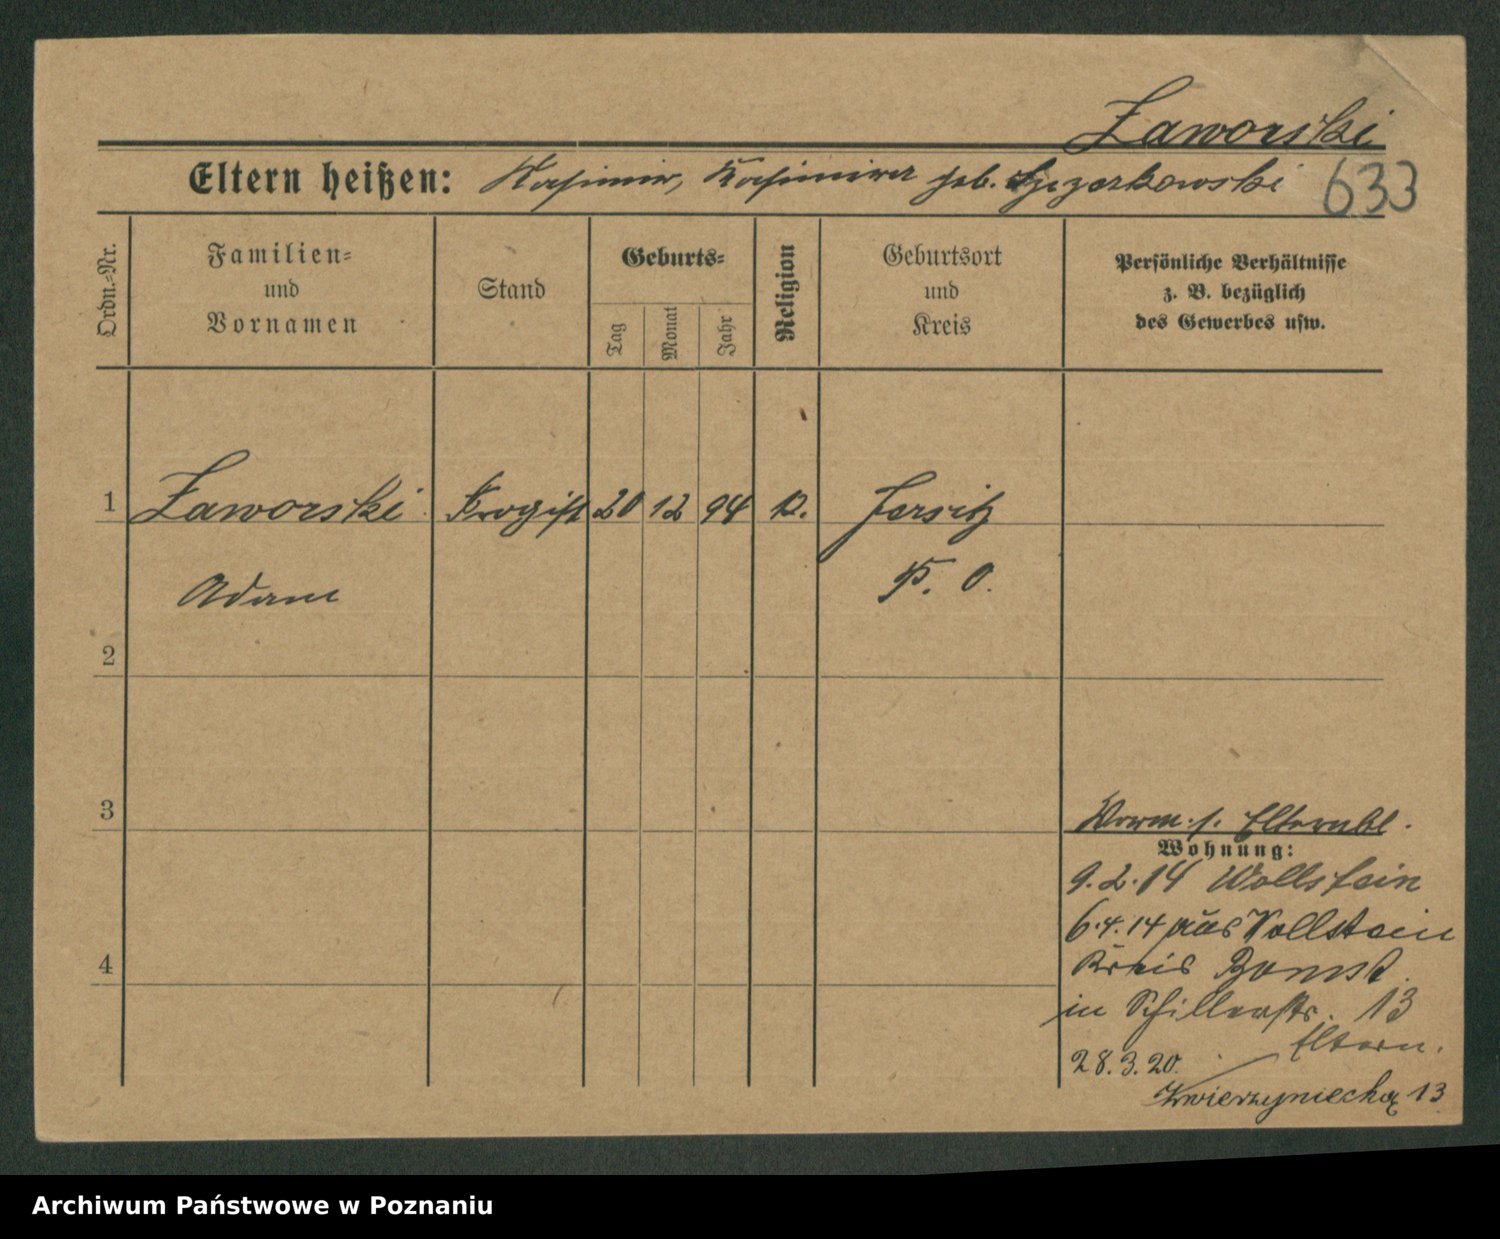 Jaworski
Eltern heißen: Kasimir, Kasimira geb. 633
Ordn.-Nr.
Familien=
und
Vornamen
Stand
Geburts=
Tag
Monat
Jahr
Religion
Geburtsort
und
Kreis
Persönliche Verhältnisse
z. B. bezüglich
des Gewerbes usw.
1 Jaworski Drogist 20 12 94 k. Jersitz
Adam P. O.
2
3
Vorm. s. Elternbl.
Wohnung:
9.2.14 Wollstein
6.4.14 aus Wollstein
4
Kreis Bomst.
in Schillerstr. 13
Eltern.
28.3.20.
Zwierzyniecka 13
Archiwum Państwowe w Poznaniu